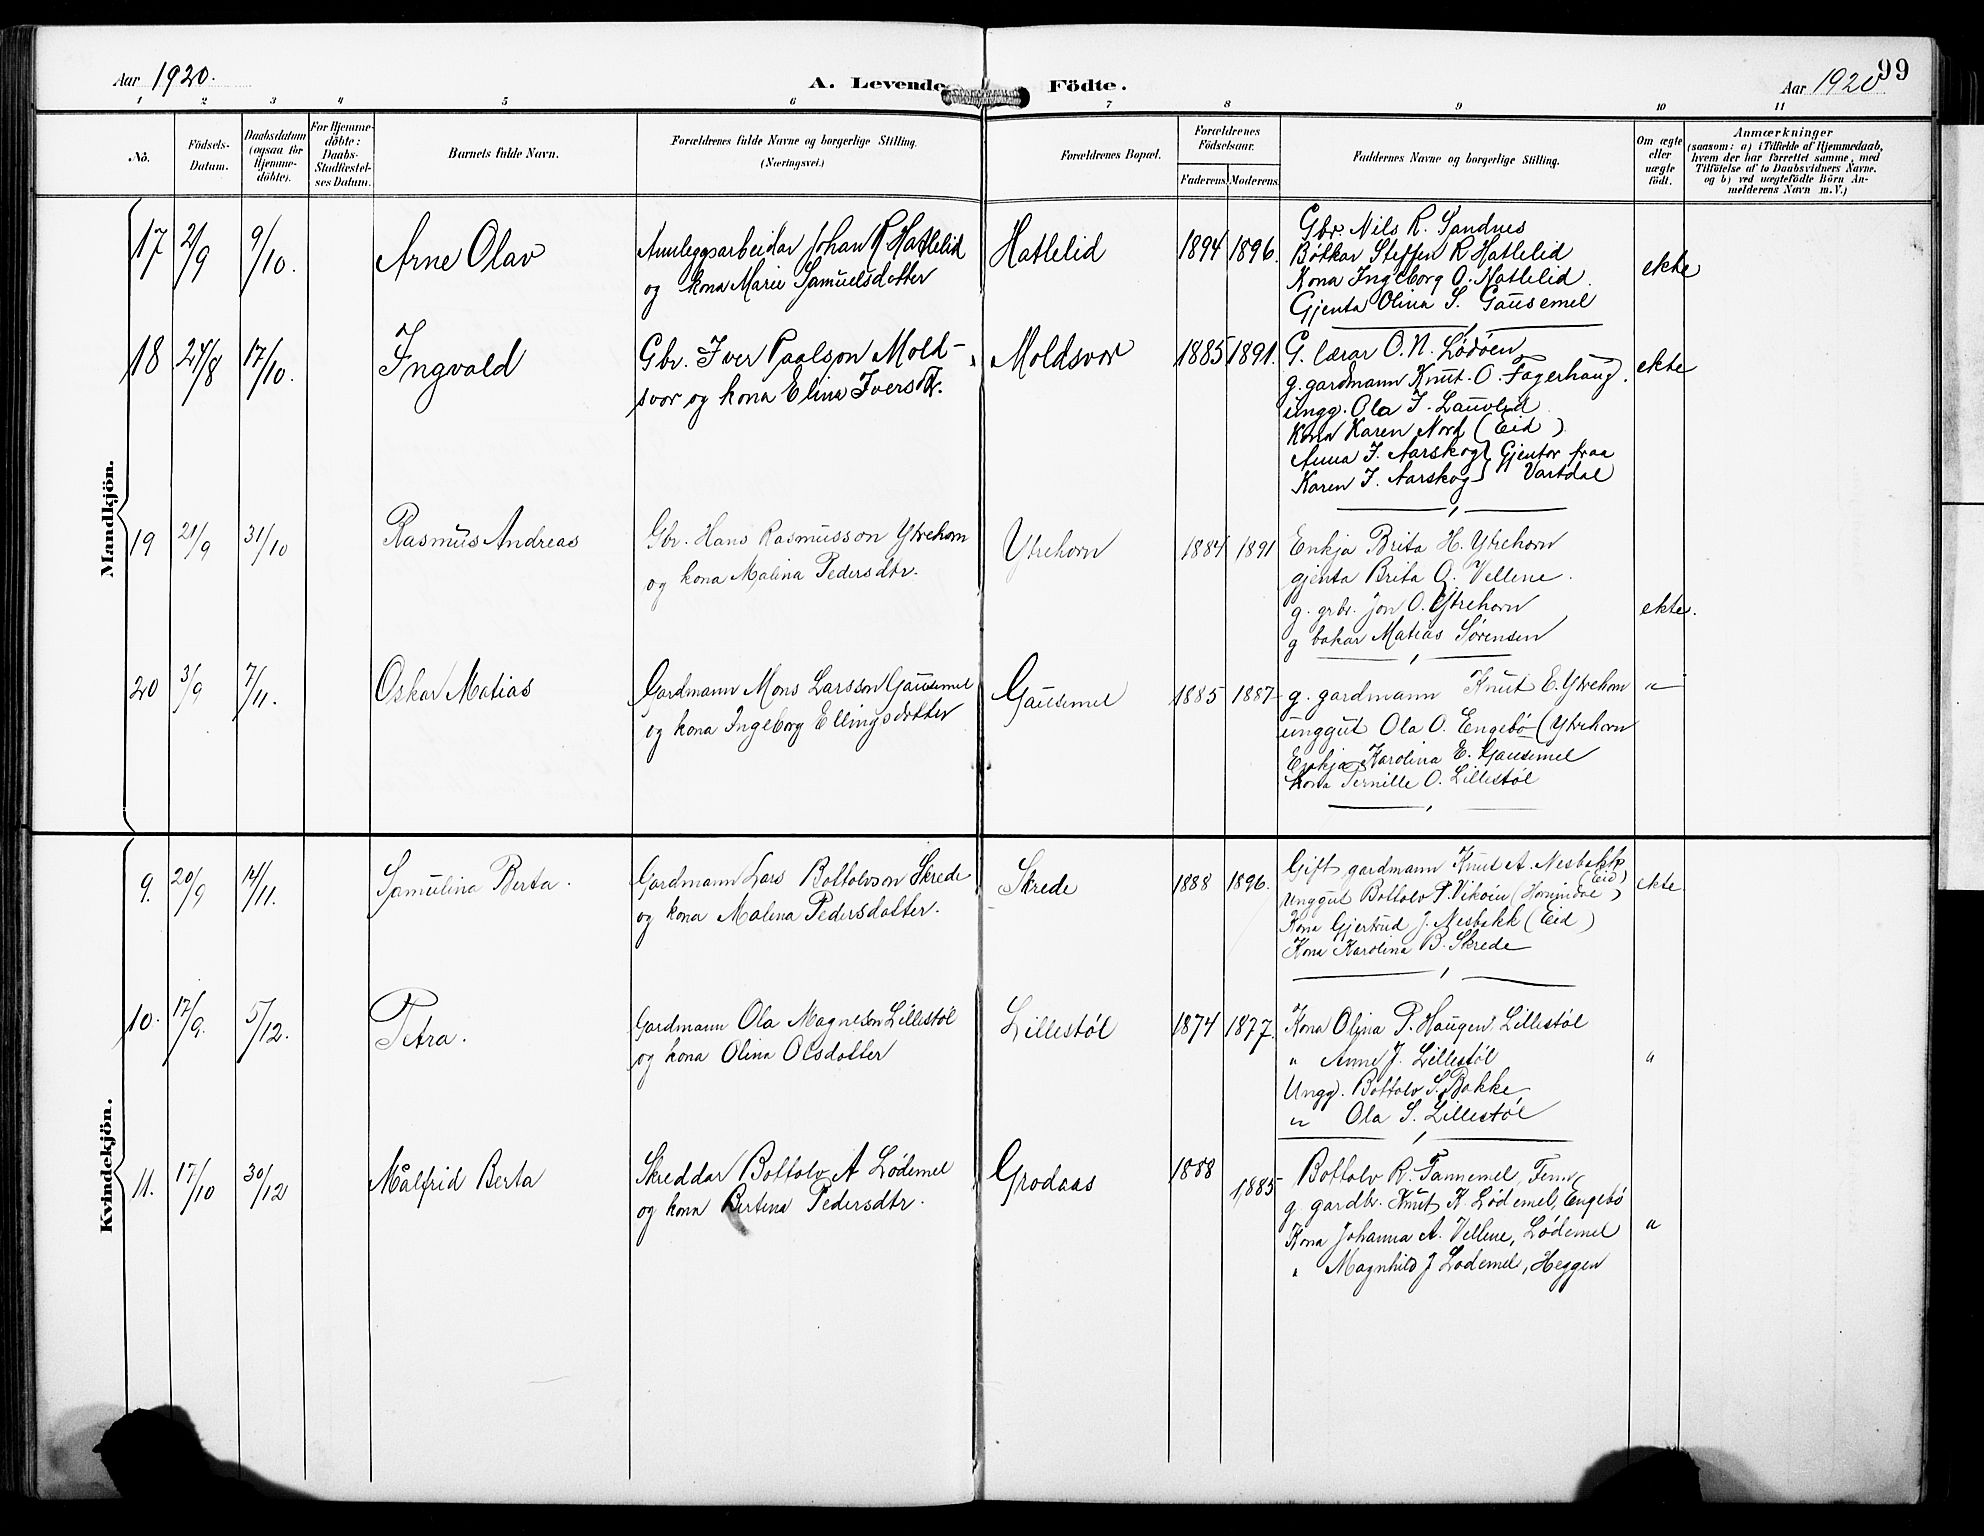 Aar 1920.
A. Levende Födte.
Aar 1920
99
1 2 3 4 5 6 7 8 9 10 11
No.
Födsels-
Datum.
Daabsdatum
(ogsaa for
Hjemme-
döbte).
For Hjemme-
döbte:
Daabs-
Stadfæstel-
ses Datum.
Barnets fulde Navn.
Forældrenes fulde Navne og borgerlige Stilling.
(Næringsvei.)
Forældrenes Bopæl.
Forældrenes
Födselsaar.
Faderens. Moderens.
Faddernes Navne og borgerlige Stilling.
Om ægte
eller
uægte
födt.
Anmærkninger
(saasom: a) i Tilfælde af Hjemmedaab,
hvem der har forrettet samme, med
Tilföielse af to Daabsvidners Navne.
og b) ved uægtefödte Börn An-
melderens Navn m. V.)
Mandkjön.
17 2/9 9/10. Arne Olav
Annleggsarbeidar Johan R Hatlelid
og kona Marie Samuelsdotter
Hatlelid 1894 1896.
Gbr. Nils R. Sandnes
Bøtkar Steffen R Hatlelid
Kona Ingeborg O. Hatlelid.
Gjenta Olina S. Gausemel
ekte
18 24/8 17/10. Ingvald
Gbr. Iver Paalson Mold-
svor og kona Elina Iversdtr.
Moldsvor 1885 1891.
G. lærar O. N. Lødøen
g. gardmann Knut. O. Fagerhaug.
ungg. Ola I. Lauvlid
Kona Karen Nord (Eid)
Anna I. Aarskog } Gjentor fraa
Karen I. Aarskog } Vartdal
ekte
19 21/9 31/10 Rasmus Andreas
Gbr. Hans Rasmusson Ytrehorn
og kona Malina Pedersdtr.
Ytrehorn 1884 1891
Enkja Brita H. Ytrehorn
gjenta Brita O. Vellene.
g. grbr. Jon O. Ytrehorn
g bakar Matias Sørensen
ekte.
20 3/9 7/11. Oskar Matias
Gardmann Mons Larsson Gausemel
og kona Ingeborg Ellingsdotter
Gausemel 1885 1887
g. gardmann Knut E. Ytrehorn
unggut Ola O. Engebø (Ytrehorn
Enkja Karolina E. Gausemel
Kona Pernille O. Lillestøl
"
Kvindekjön.
9. 20/9 14/11. Samulina Berta.
Gardmann Lars Bottolvson Skrede
og kona Malina Pedersdotter.
Skrede 1888 1896.
Gift gardmann Knut A. Nesbakk
(Eid)
Unggut Bottolv P. Vikøin (Hornindal)
Kona Gjertrud J. Nesbakk (Eid)
Kona Karolina B. Skrede
ekte
10. 17/9. 5/12. Petra.
Gardmann Ola Magneson Lillestøl
og kona Olina Olsdotter
Lillestøl 1874 1877.
Kona Olina P. Haugen, Lillestøl
" Anne J. Lillestøl
Ungg. Bottolv S. Bakke
" Ola S. Lillestøl
"
11. 17/10 30/12 Målfrid Berta
Skreddar Bottolv A Lødemel
og kona Bertina Pedersdtr.
Grodaas 1888 1885
Bottolv R. Tannemel,
g. gardbr. Knut K. Lødemel, Engebø
Kona Johanna A. Vellene, Lødemel
" Magnhild J Lødemel, Heggen
"